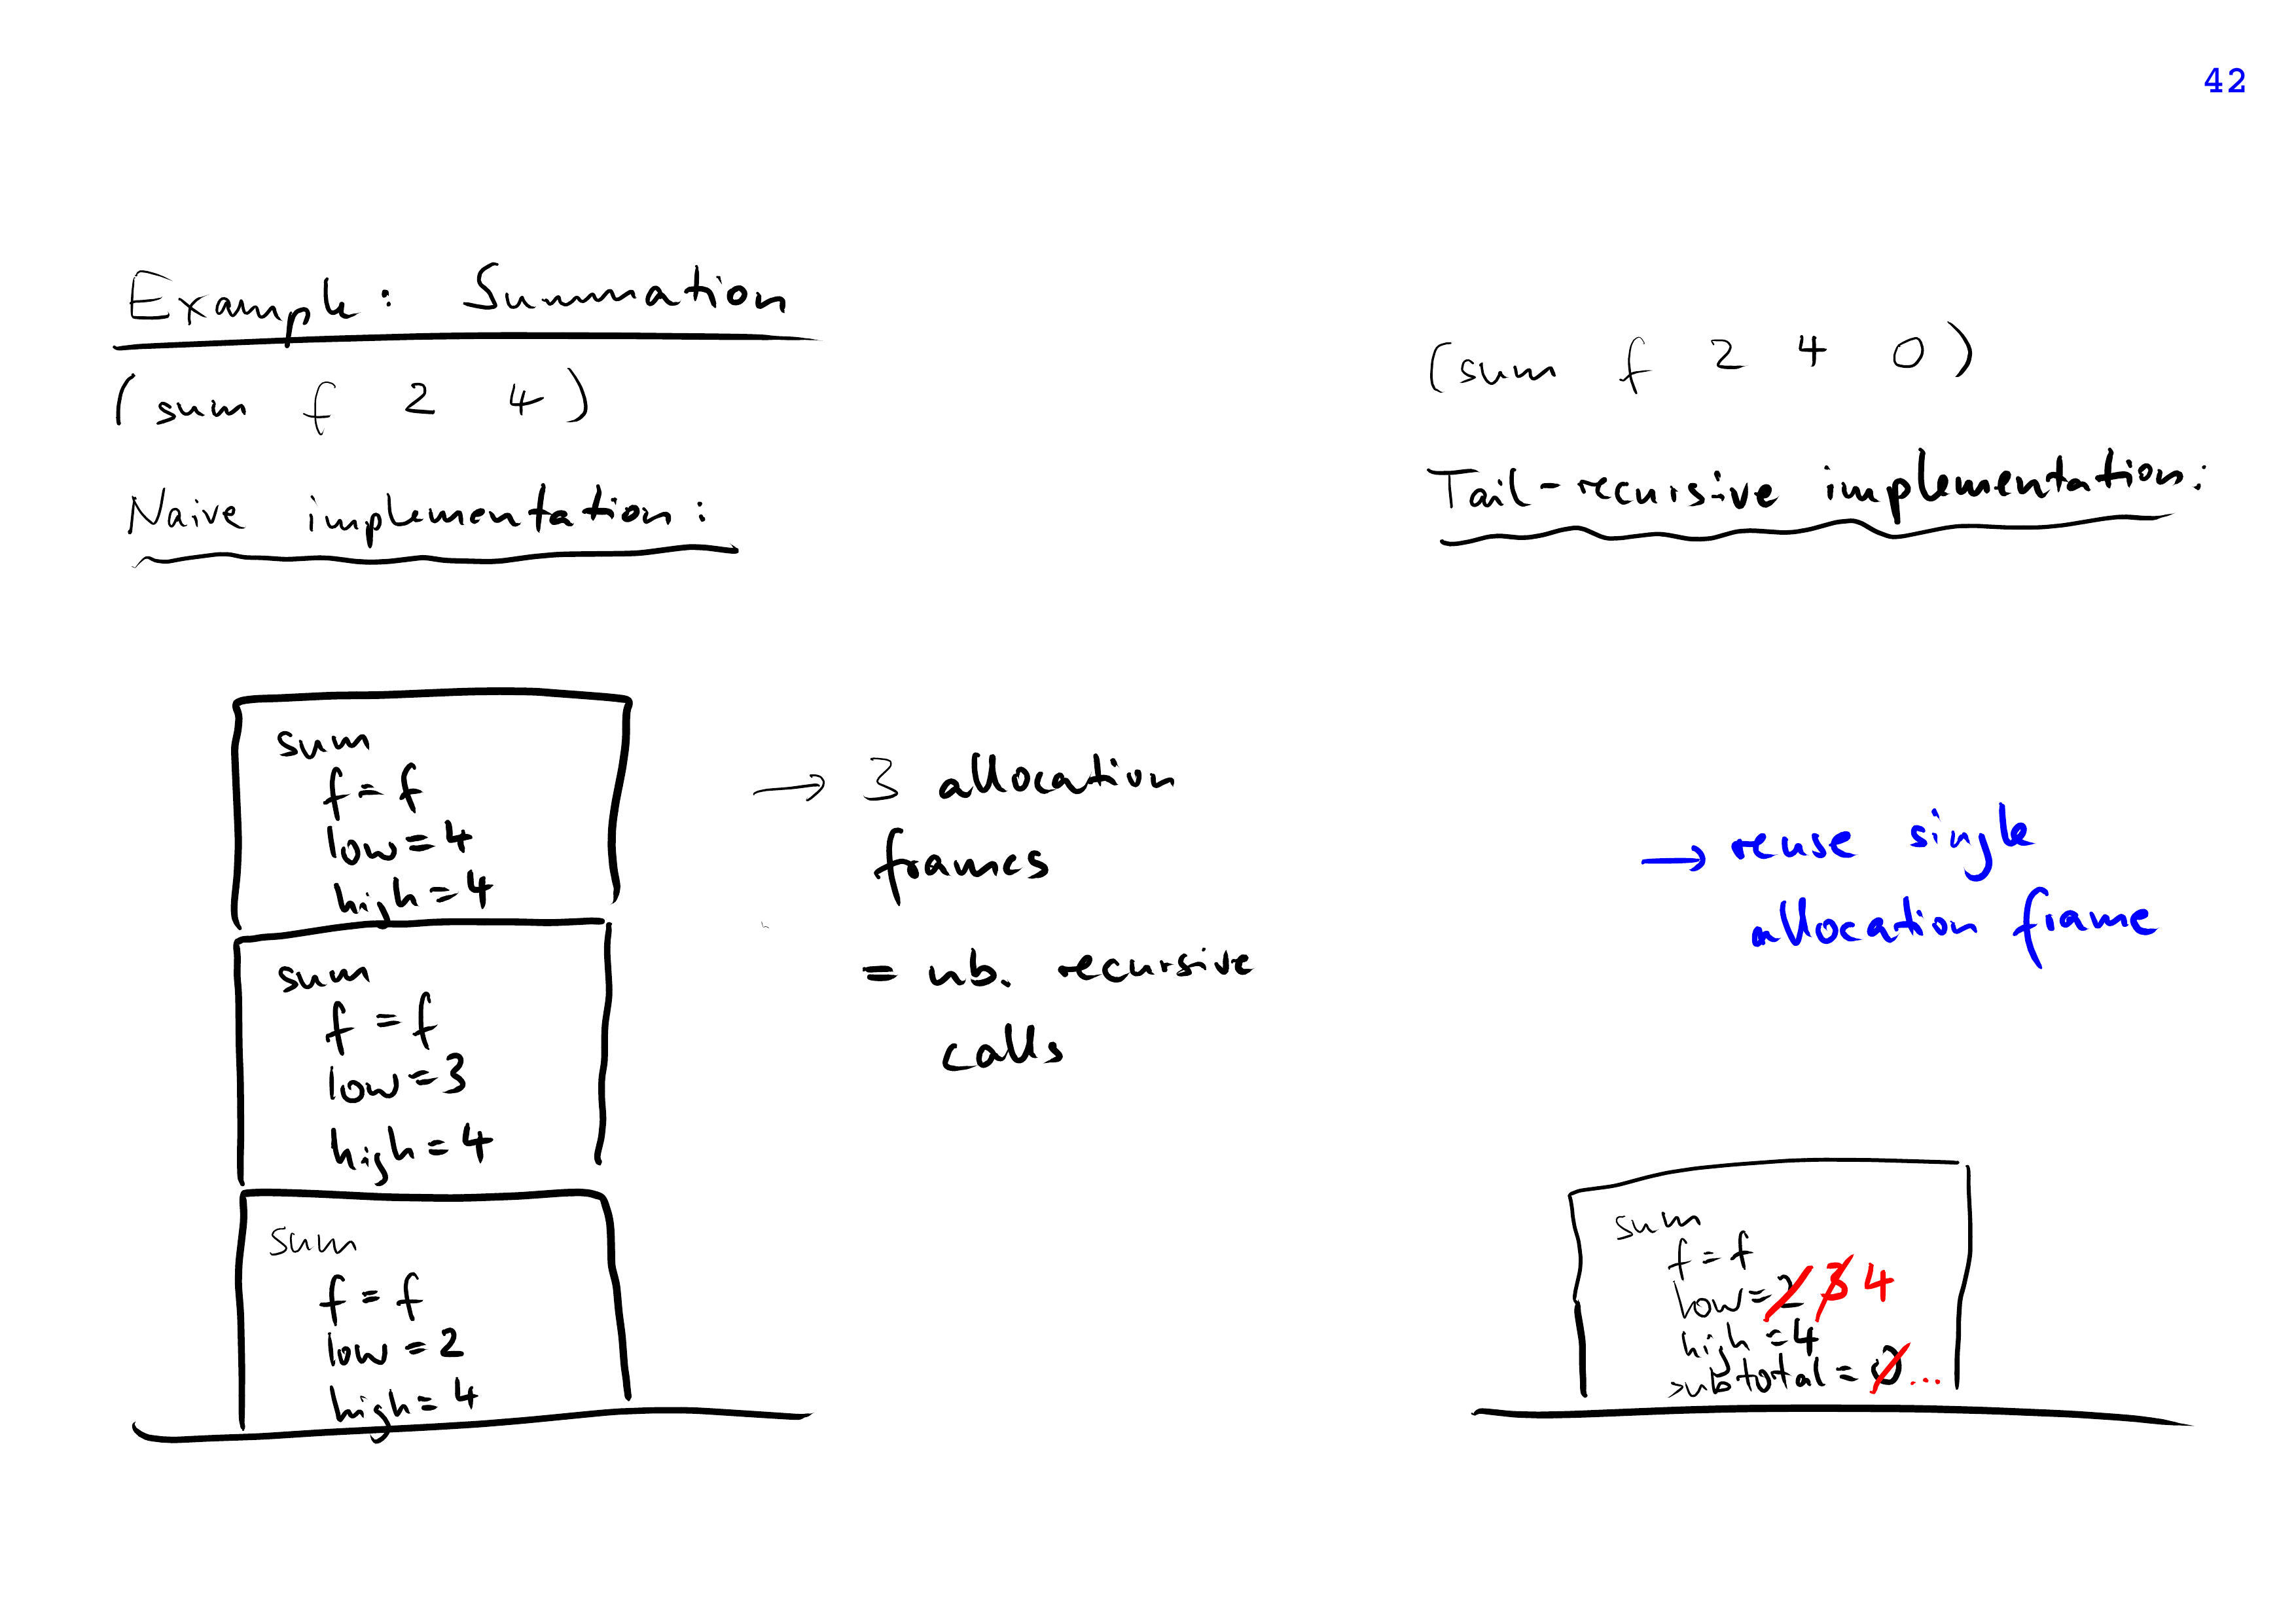 42
Example: Summation
(sum f 2 4)
Naive implementation:
sum
f = f
low = 4
high = 4
sum
f = f
low = 3
high = 4
sum
f = f
low = 2
high = 4
→ 3 allocation
frames
= nb. recursive
calls
(sum f 2 4 0)
Tail-recursive implementation:
→ reuse single
allocation frame
sum
f = f
low = 2 3 4
high = 4
subtotal = 0 ...